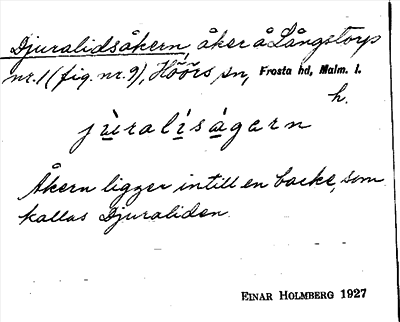 Djuralidsåkern, åker å Långstorp
nr. 1 (fig. nr. 9), Höörs sn, Frosta hd, Malm. l.
h.
jùralíságarn
Åkern ligger intill en backe, som
kallas Djuraliden.
EINAR HOLMBERG 1927